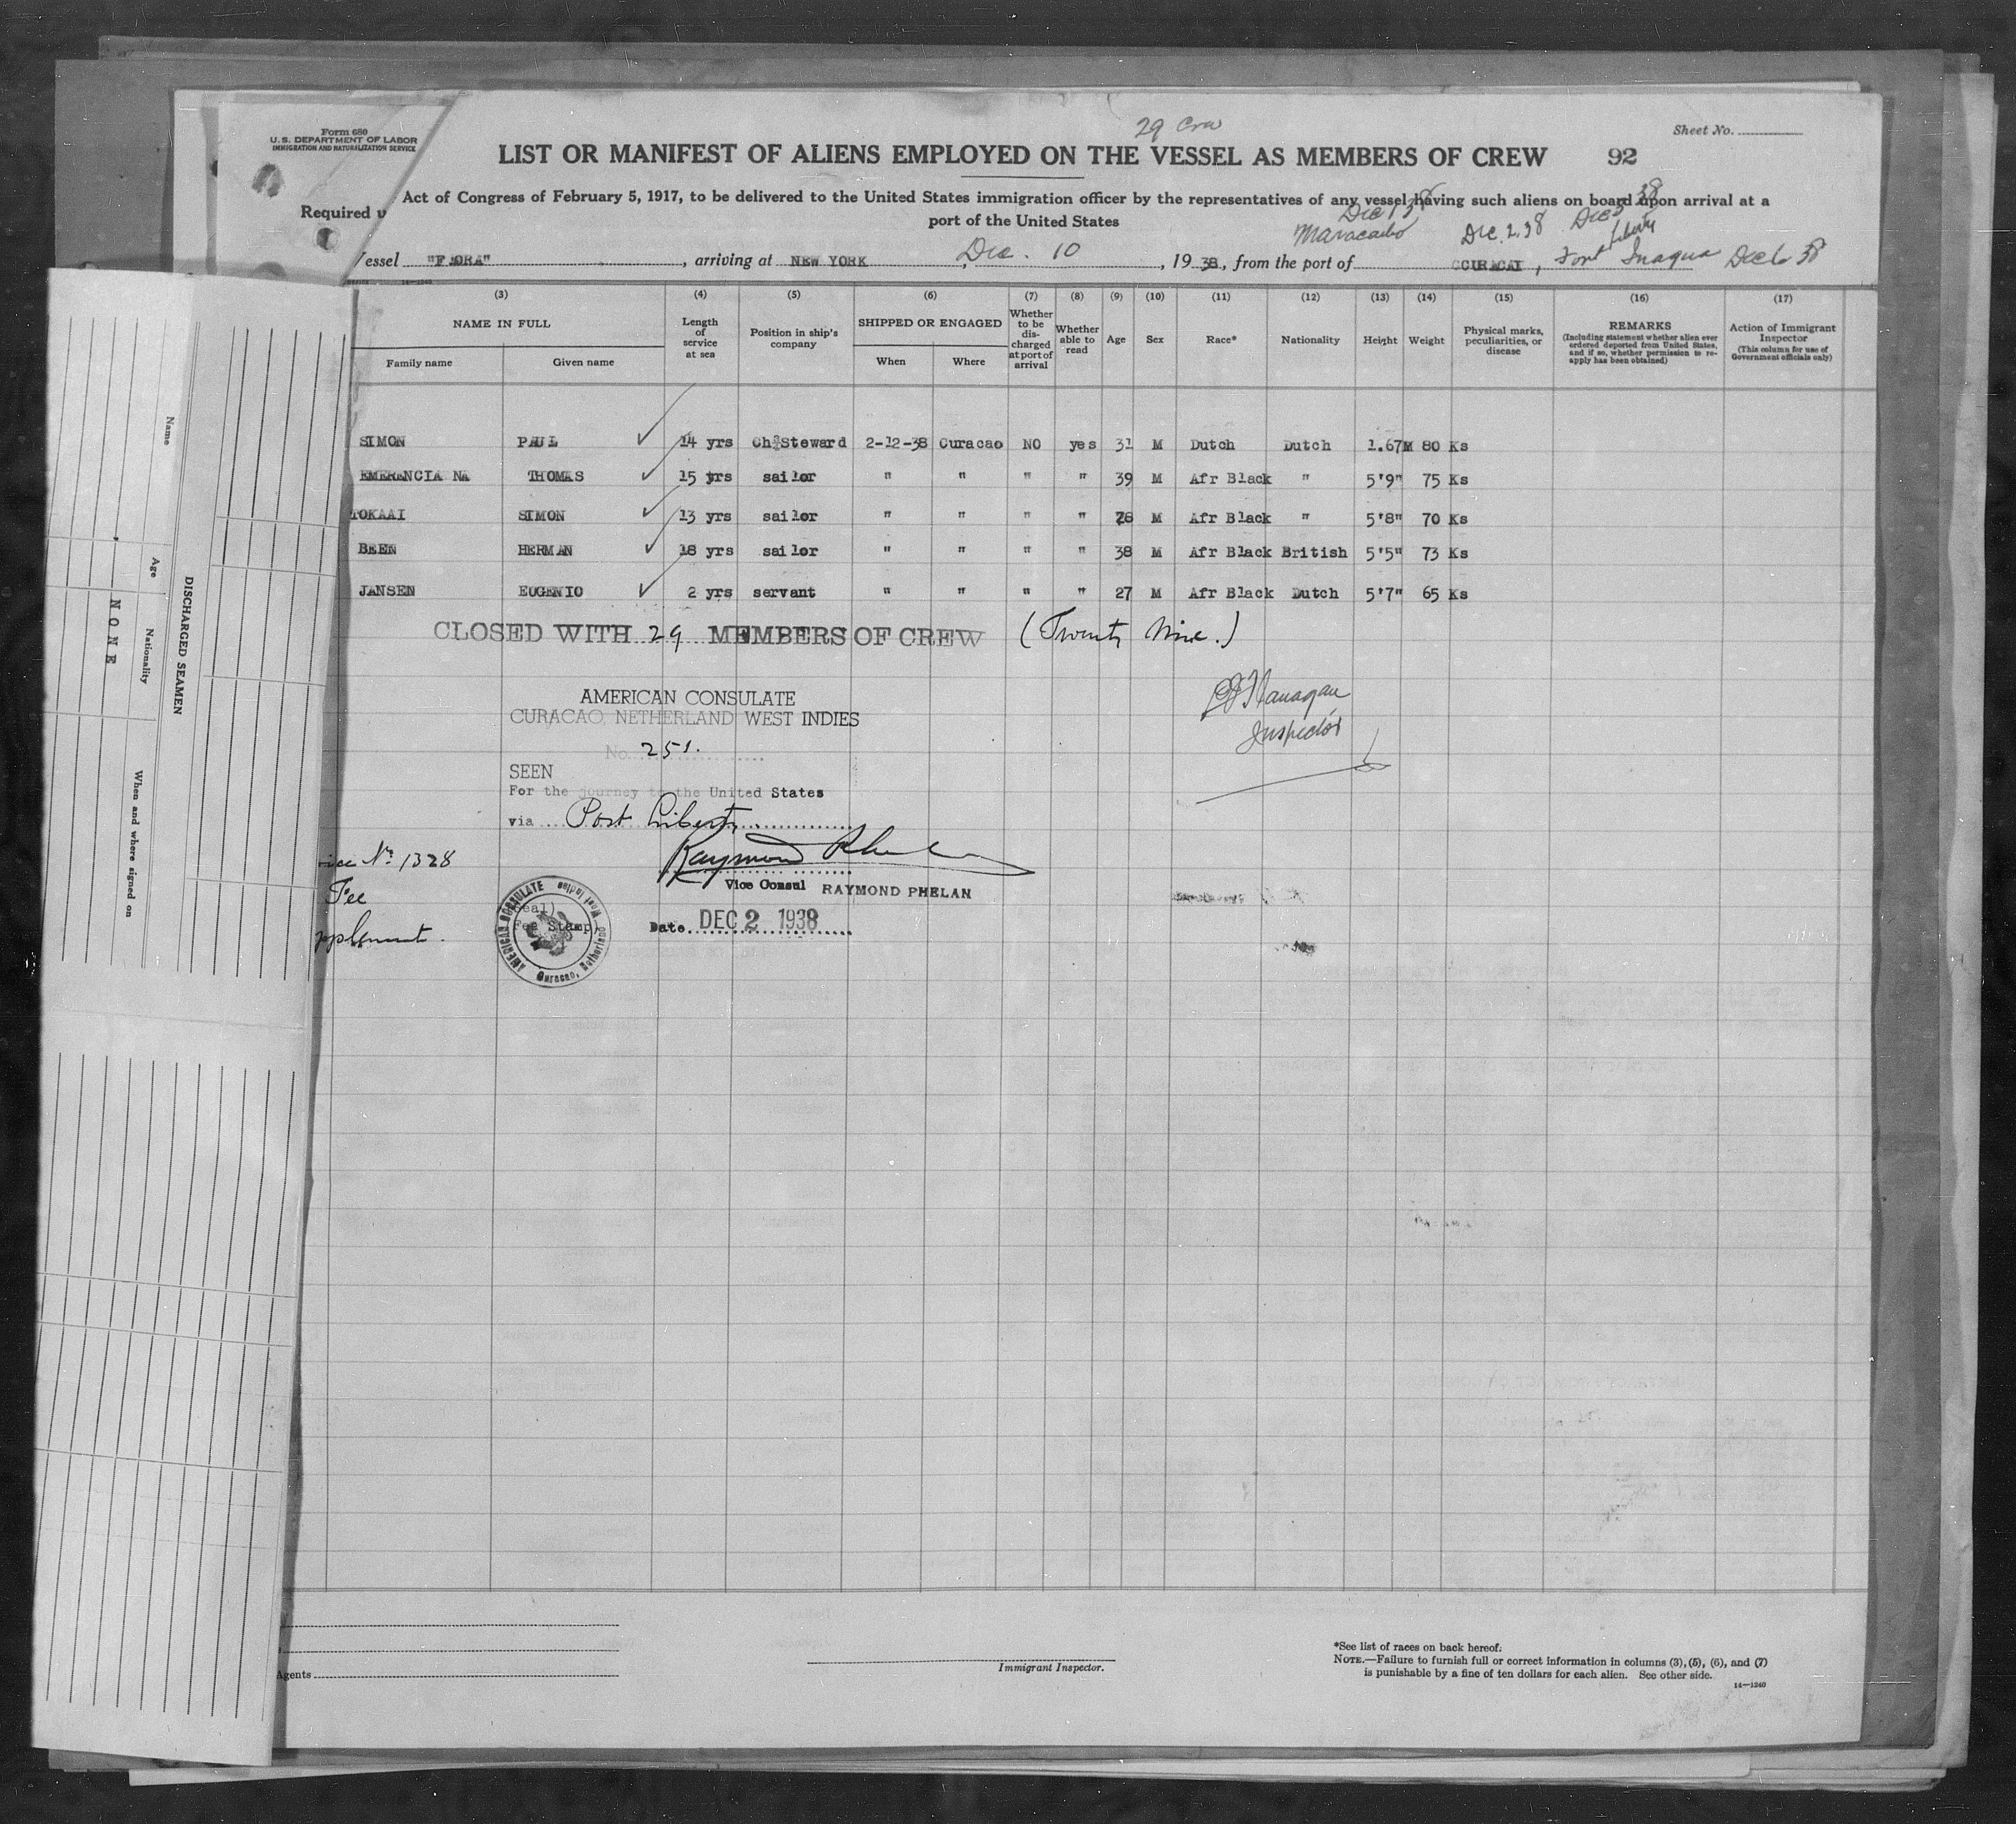 29 Crew
Sheet No.
Form 680
U.S. DEPARTMENT OF LABOR
IMMIGRATION AND NATURALIZATION SERVICE
LIST OR MANIFEST OF ALIENS EMPLOYED ON THE VESSEL AS MEMBERS OF CREW 92
Required u Act of Congress of February 5, 1917, to be delivered to the United States immigration officer by the representatives of any vessel having such aliens on board upon arrival at a
port of the United States
Maracaibo Dec. 2. 38 Liberty
Vessel "FLORA", arriving at NEW YORK, Dec. 10, 1938, from the port of CURACAI, Fort Inagua Dec 6 38
(3) (4) (5) (6) (7) (8) (9) (10) (11) (12) (13) (14) (15) (16) (17)
NAME IN FULL Length of service at sea Position in ship's company SHIPPED OR ENGAGED Whether to be discharged at port of arrival Whether able to read Age Sex Race* Nationality Height Weight Physical marks, peculiarities, or disease REMARKS (Including statement whether alien ever ordered deported from United States, and if so, whether permission to re-apply has been obtained) Action of Immigrant Inspector (This column for use of Government officials only)
Family name Given name When Where
SIMON PAUL 14 yrs Ch:Steward 2-12-38 Curacao NO yes 31 M Dutch Dutch 1.67M 80 Ks
EMERENCIA NA THOMAS 15 yrs sailor " " " " 39 M Afr Black " 5'9" 75 Ks
TOKAAI SIMON 13 yrs sailor " " " " 28 M Afr Black " 5'8" 70 Ks
BEEN HERMAN 18 yrs sailor " " " " 38 M Afr Black British 5'5" 73 Ks
JANSEN EUGENIO 2 yrs servant " " " " 27 M Afr Black Dutch 5'7" 65 Ks
CLOSED WITH 29 MEMBERS OF CREW (Twenty Nine.)
AMERICAN CONSULATE
CURACAO, NETHERLAND WEST INDIES
No. 251.
Flanagan
Inspector
SEEN
For the journey to the United States
via Port Liberty
Raymond Phelan
Vice Consul RAYMOND PHELAN
Date DEC 2 1938
No 1328
Fee
AMERICAN CONSULATE
Curacao, Netherland West Indies
Fee Stamp
DISCHARGED SEAMEN
Name Age Nationality When and where signed on
NONE
Agents
Immigrant Inspector.
*See list of races on back hereof.
NOTE.—Failure to furnish full or correct information in columns (3), (5), (6), and (7)
is punishable by a fine of ten dollars for each alien. See other side.
14—1240